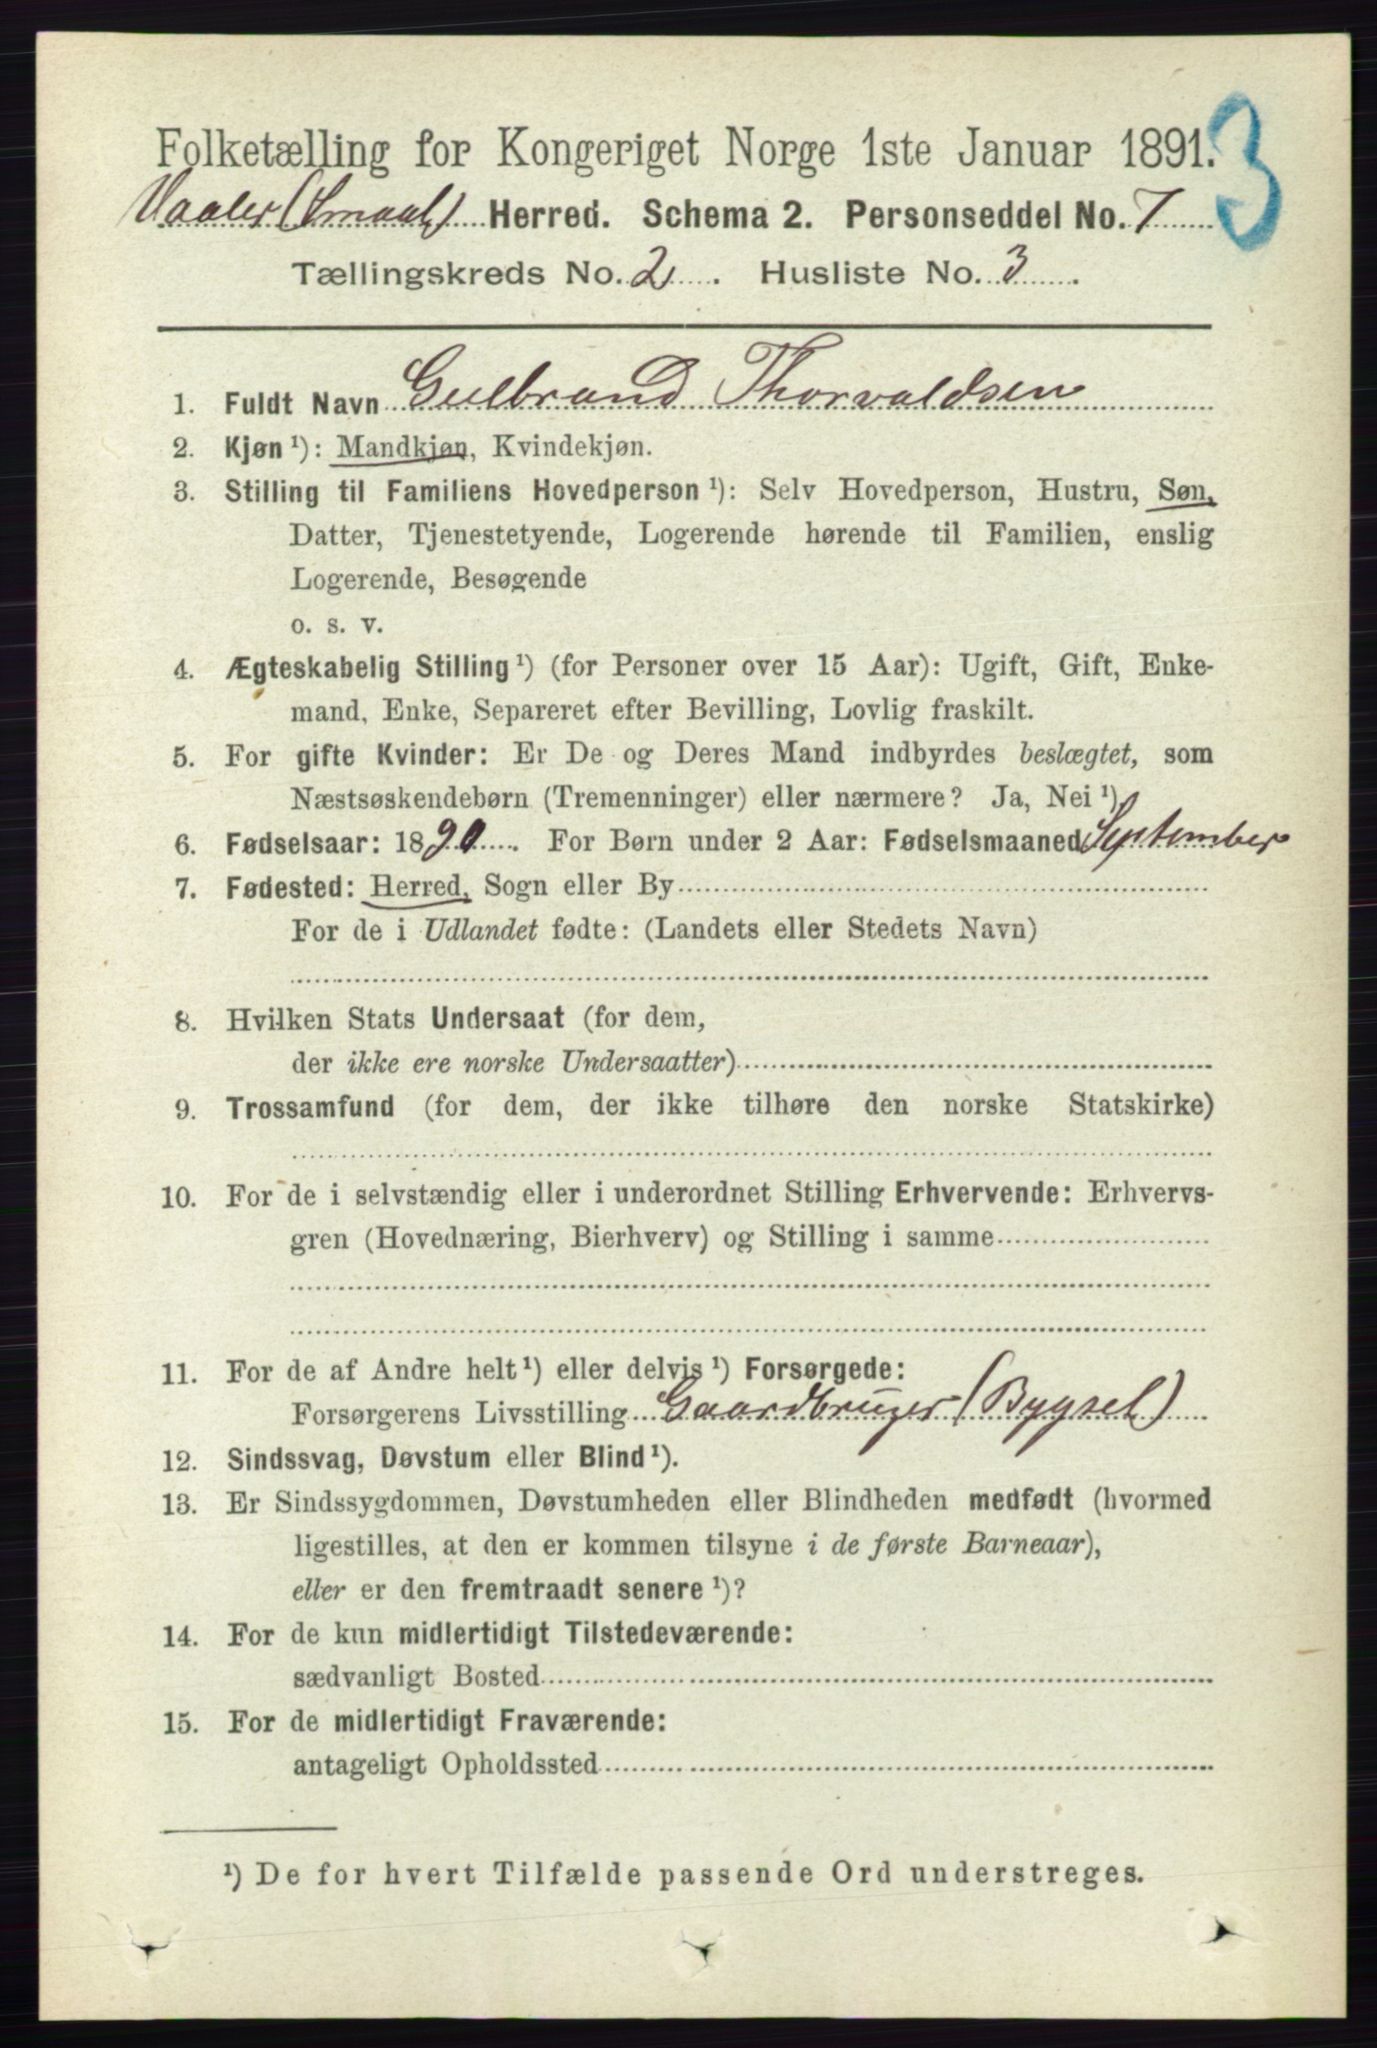 Folketælling for Kongeriget Norge 1ste Januar 1891.
3
Vaaler (Smaal) Herred. Schema 2. Personseddel No. 7
Tællingskreds No. 2. Husliste No. 3.
1. Fuldt Navn Gulbrand Thorvaldsen
2. Kjøn ¹): Mandkjøn, Kvindekjøn.
3. Stilling til Familiens Hovedperson ¹): Selv Hovedperson, Hustru, Søn,
Datter, Tjenestetyende, Logerende hørende til Familien, enslig
Logerende, Besøgende
o. s. v.
4. Ægteskabelig Stilling ¹) (for Personer over 15 Aar): Ugift, Gift, Enke-
mand, Enke, Separeret efter Bevilling, Lovlig fraskilt.
5. For gifte Kvinder: Er De og Deres Mand indbyrdes beslægtet, som
Næstsøskendebørn (Tremenninger) eller nærmere? Ja, Nei ¹)
6. Fødselsaar: 1890. For Børn under 2 Aar: Fødselsmaaned September
7. Fødested: Herred, Sogn eller By
For de i Udlandet fødte: (Landets eller Stedets Navn)
8. Hvilken Stats Undersaat (for dem,
der ikke ere norske Undersaatter)
9. Trossamfund (for dem, der ikke tilhøre den norske Statskirke)
10. For de i selvstændig eller i underordnet Stilling Erhvervende: Erhvervs-
gren (Hovednæring, Bierhverv) og Stilling i samme
11. For de af Andre helt ¹) eller delvis ¹) Forsørgede:
Forsørgerens Livsstilling Gaardbruger (Bygsel)
12. Sindssvag, Døvstum eller Blind ¹).
13. Er Sindssygdommen, Døvstumheden eller Blindheden medfødt (hvormed
ligestilles, at den er kommen tilsyne i de første Barneaar),
eller er den fremtraadt senere ¹)?
14. For de kun midlertidigt Tilstedeværende:
sædvanligt Bosted
15. For de midlertidigt Fraværende:
antageligt Opholdssted
¹) De for hvert Tilfælde passende Ord understreges.